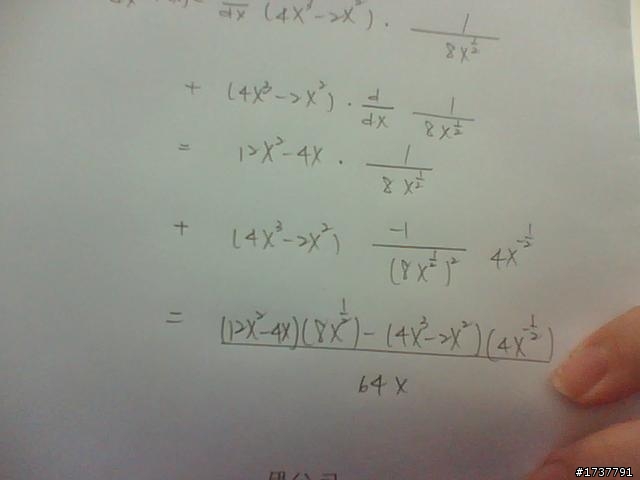 d/dx (4x³-2x²) · 1/(8x^(1/2))
+ (4x³-2x²) · d/dx 1/(8x^(1/2))
= 12x²-4x · 1/(8x^(1/2))
+ (4x³-2x²) -1/(8x^(1/2))² 4x^(-1/2)
= ((12x²-4x)(8x^(1/2))-(4x³-2x²)(4x^(-1/2)))/(64x)
#1737791